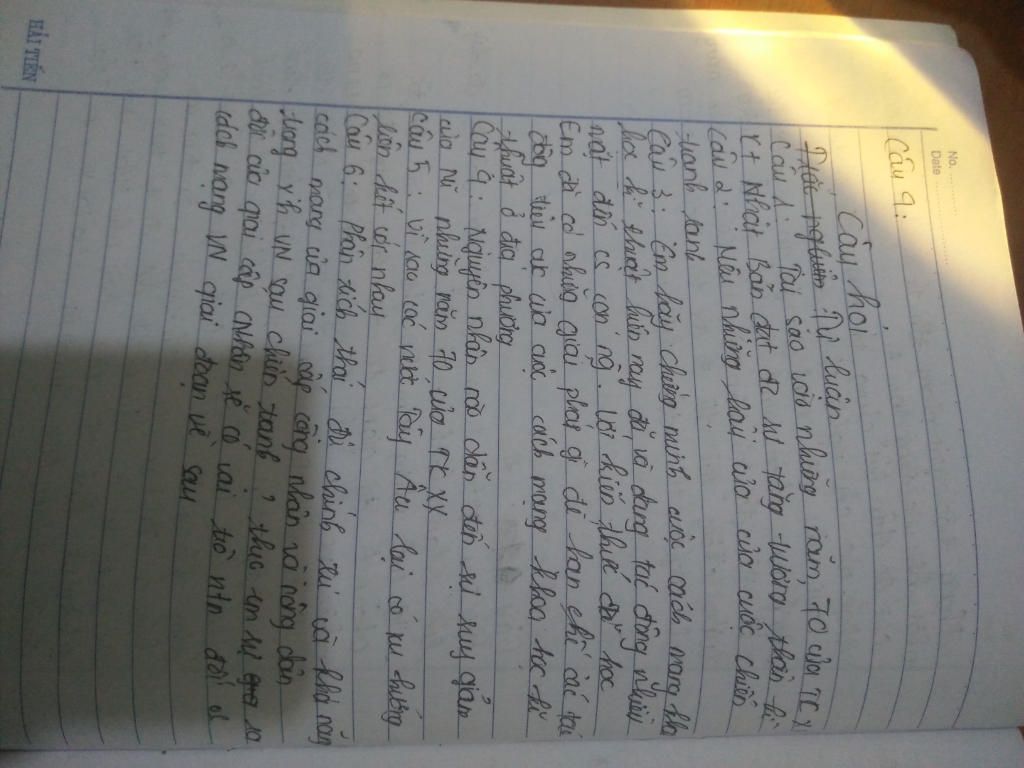 No.
Date
Câu 9:
Câu hỏi
Tự luận
Câu 1: Tại sao vào những năm 70 của TK X
Nhật Bản đạt đc sự tăng trưởng thần kì
Câu 2: Nêu những hậu của của cuộc chiến
tranh lạnh
Câu 3: Em hãy chứng minh cuộc cách mạng kho
học kĩ thuật hiện nay đã và đang tác động nhiều
mặt đến cs con ng. Với kiến thức đã học
Em đã có những giải pháp gì để hạn chế các tác
động tiêu cực của cuộc cách mạng khoa học kĩ
thuật ở địa phương
Câu 4. Nguyên nhân nào dẫn đến sự suy giảm
của Mĩ những năm 70 của TK XX
Câu 5. Vì sao các nước Tây Âu lại có xu hướng
liên kết với nhau
Câu 6. Phân tích thái độ chính trị và khả năng
cách mạng của giai cấp công nhân và nông dân
trong xh VN sau chiến tranh, theo em sự ra
đời của giai cấp CNhân sẽ có vai trò ntn đối vs
cách mạng VN giai đoạn về sau
HẢI TIẾN